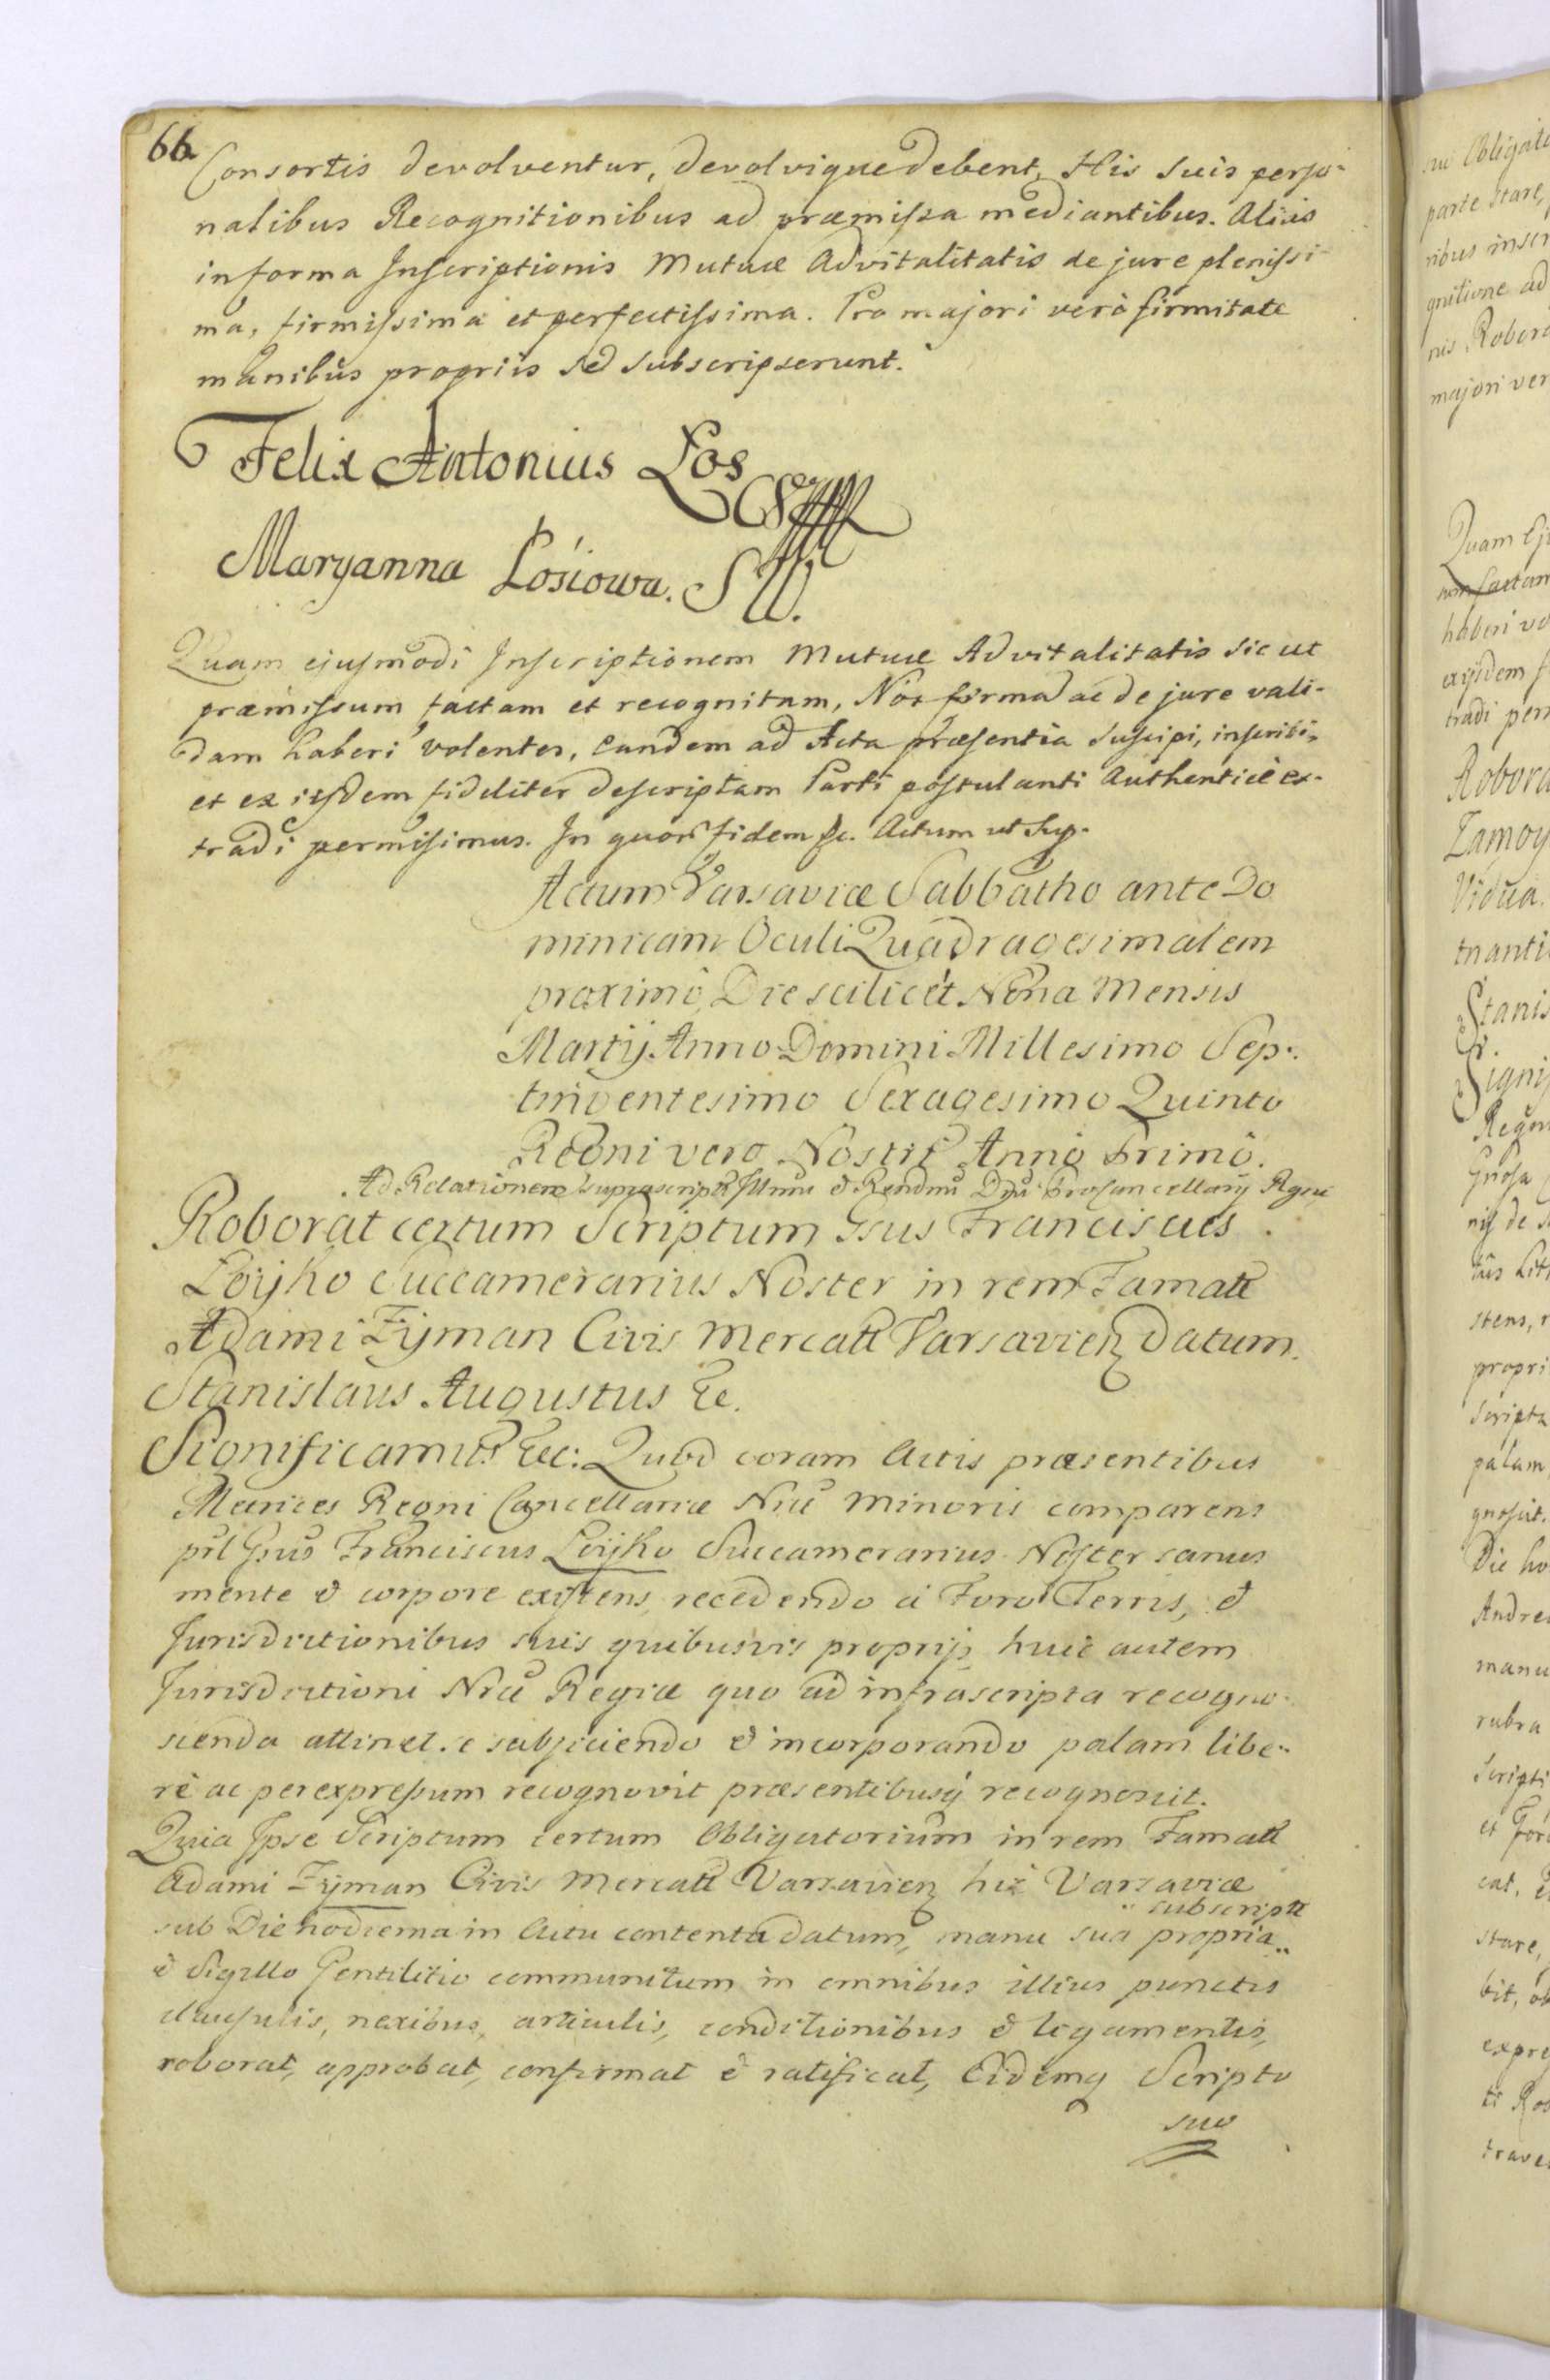 66
Consortis devolventur, devolvique debent, His suis perso-
nalibus Recognitionibus ad præmissa mediantibus. Aliàs
in forma Inscriptionis Mutuæ Advitalitatis de jure plenissi-
ma, firmissima et perfectissima. Pro majori verò firmitate
manibus propriis se subscripserunt.
Felix Antonius Łos
Maryanna Łosiowa. S W.
Quam ejusmodi Inscriptionem Mutuæ Advitalitatis sic ut
præmissum factam et recognitam, Nos firmã ac de jure vali-
dam haberi volentes, eandem ad Acta præsentia suscipi, inscribi,
et ex iisdem fideliter descriptam Parti postulanti Authenticè ex-
tradi permisimus. In quorũ fidem &c. Actum ut Sup.
Actum Varsaviæ Sabbatho ante Do
minicam Oculi Quadragesimalem
proximo, Die scilicèt Nona Mensis
Martij Anno Domini Millesimo Sep-
tingentesimo Sexagesimo Quinto
Regni vero Nostri Anno Primo.
Ad Relationem suprascripti Illmi & Rendmi Dni ProCancellarij Regni
Roborat certum Scriptum Gsus Franciscus
Łoijko Succamerarius Noster in rem Famati
Adami Zijman Civis Mercati Varsavien Datum.
Stanislaus Augustus &c.
Significamus &c: Quod coram Actis præsentibus
Metrices Regni Cancellariæ Nræ Minoris comparens
prl Gsus Franciscus Łoijko Succamerarius Noster sanus
mente & corpore existens, recedendo à Foro Terris, &
Jurisdictionibus suis quibusvis proprijs huic autem
Jurisdictioni Nræ Regiæ quo ad infrascripta recogno-
scenda attinet se subjiciendo & incorporando palam libe-
rè ac per expressum recognovit præsentibusq recognoscit.
Quia Ipse Scriptum certum Obligatorium in rem Famati
Adami Zijman Civis Mercati Varsavien hic Varsaviæ
subscriptũ
sub Die hodierna in Actu contenta datum, manu sua propria
& Sigillo Gentilitio communitum in omnibus illius punctis
clausulis, nexibus, articulis, conditionibus & ligamentis,
roborat, approbat, confirmat & ratificat, Eidemq Scripto
suo